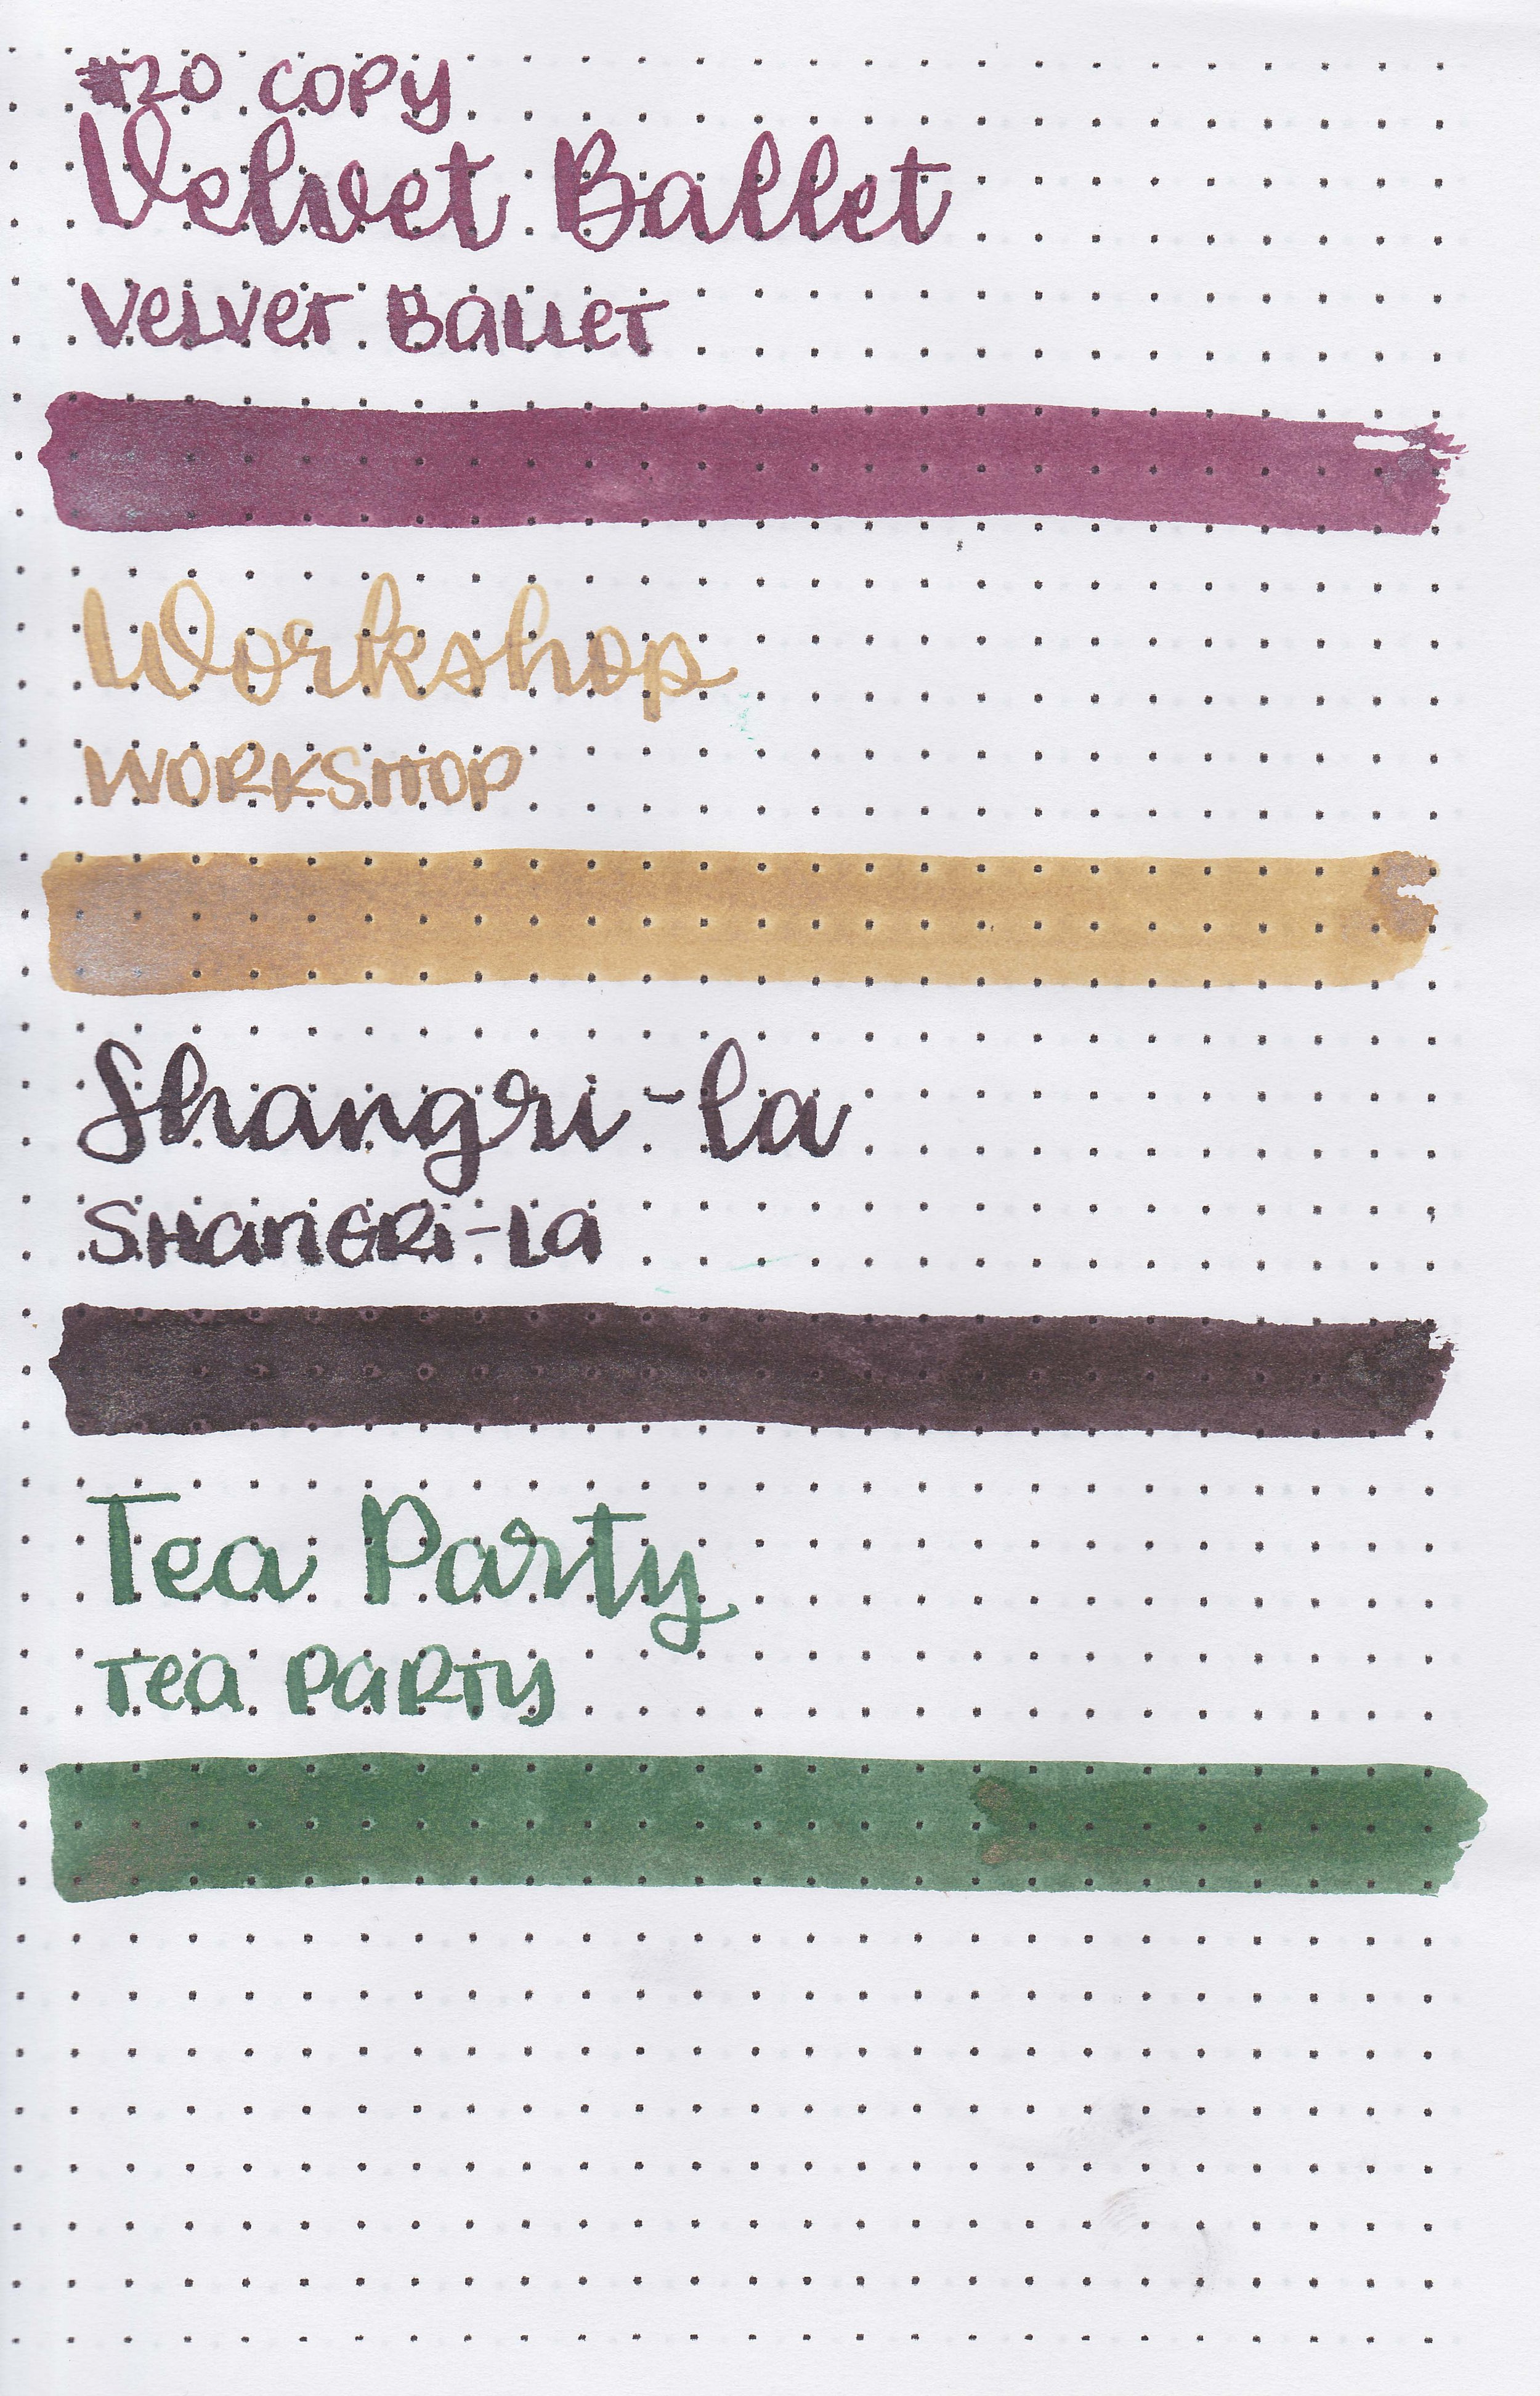 #20 COPY
Velvet Ballet
VELVET BALLET
Workshop
WORKSHOP
Shangri-la
SHANGRI-LA
Tea Party
TEA PARTY